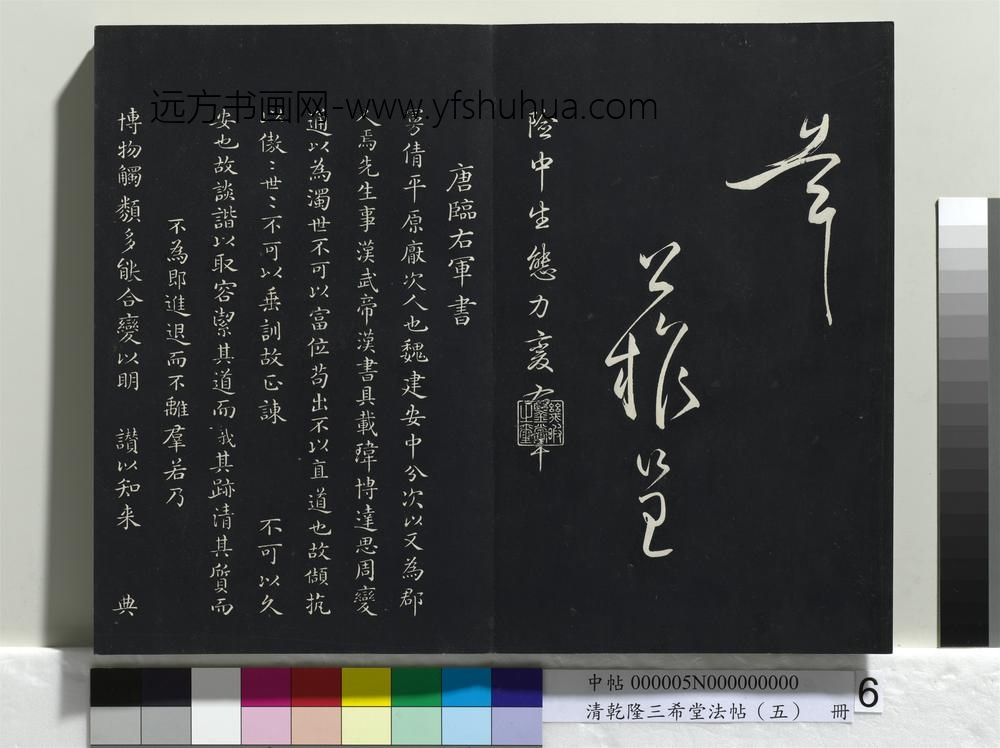 險中生態力變右軍
唐臨右軍書
曼倩平原厭次人也魏建安中分次以又為郡
人焉先生事漢武帝漢書具載瑋博達思周變
通以為濁世不可以富位苟出不以直道也故傾抗
以傲〻世〻不可以垂訓故正諫 不可以久
安也故談諧以取容潔其道而我其跡清其質而
不為即進退而不離羣若乃
博物觸類多能合變以明 讚以知来 典
远方书画网-www.yfshuhua.com
中帖 000005N000000000
清乾隆三希堂法帖（五） 冊
6